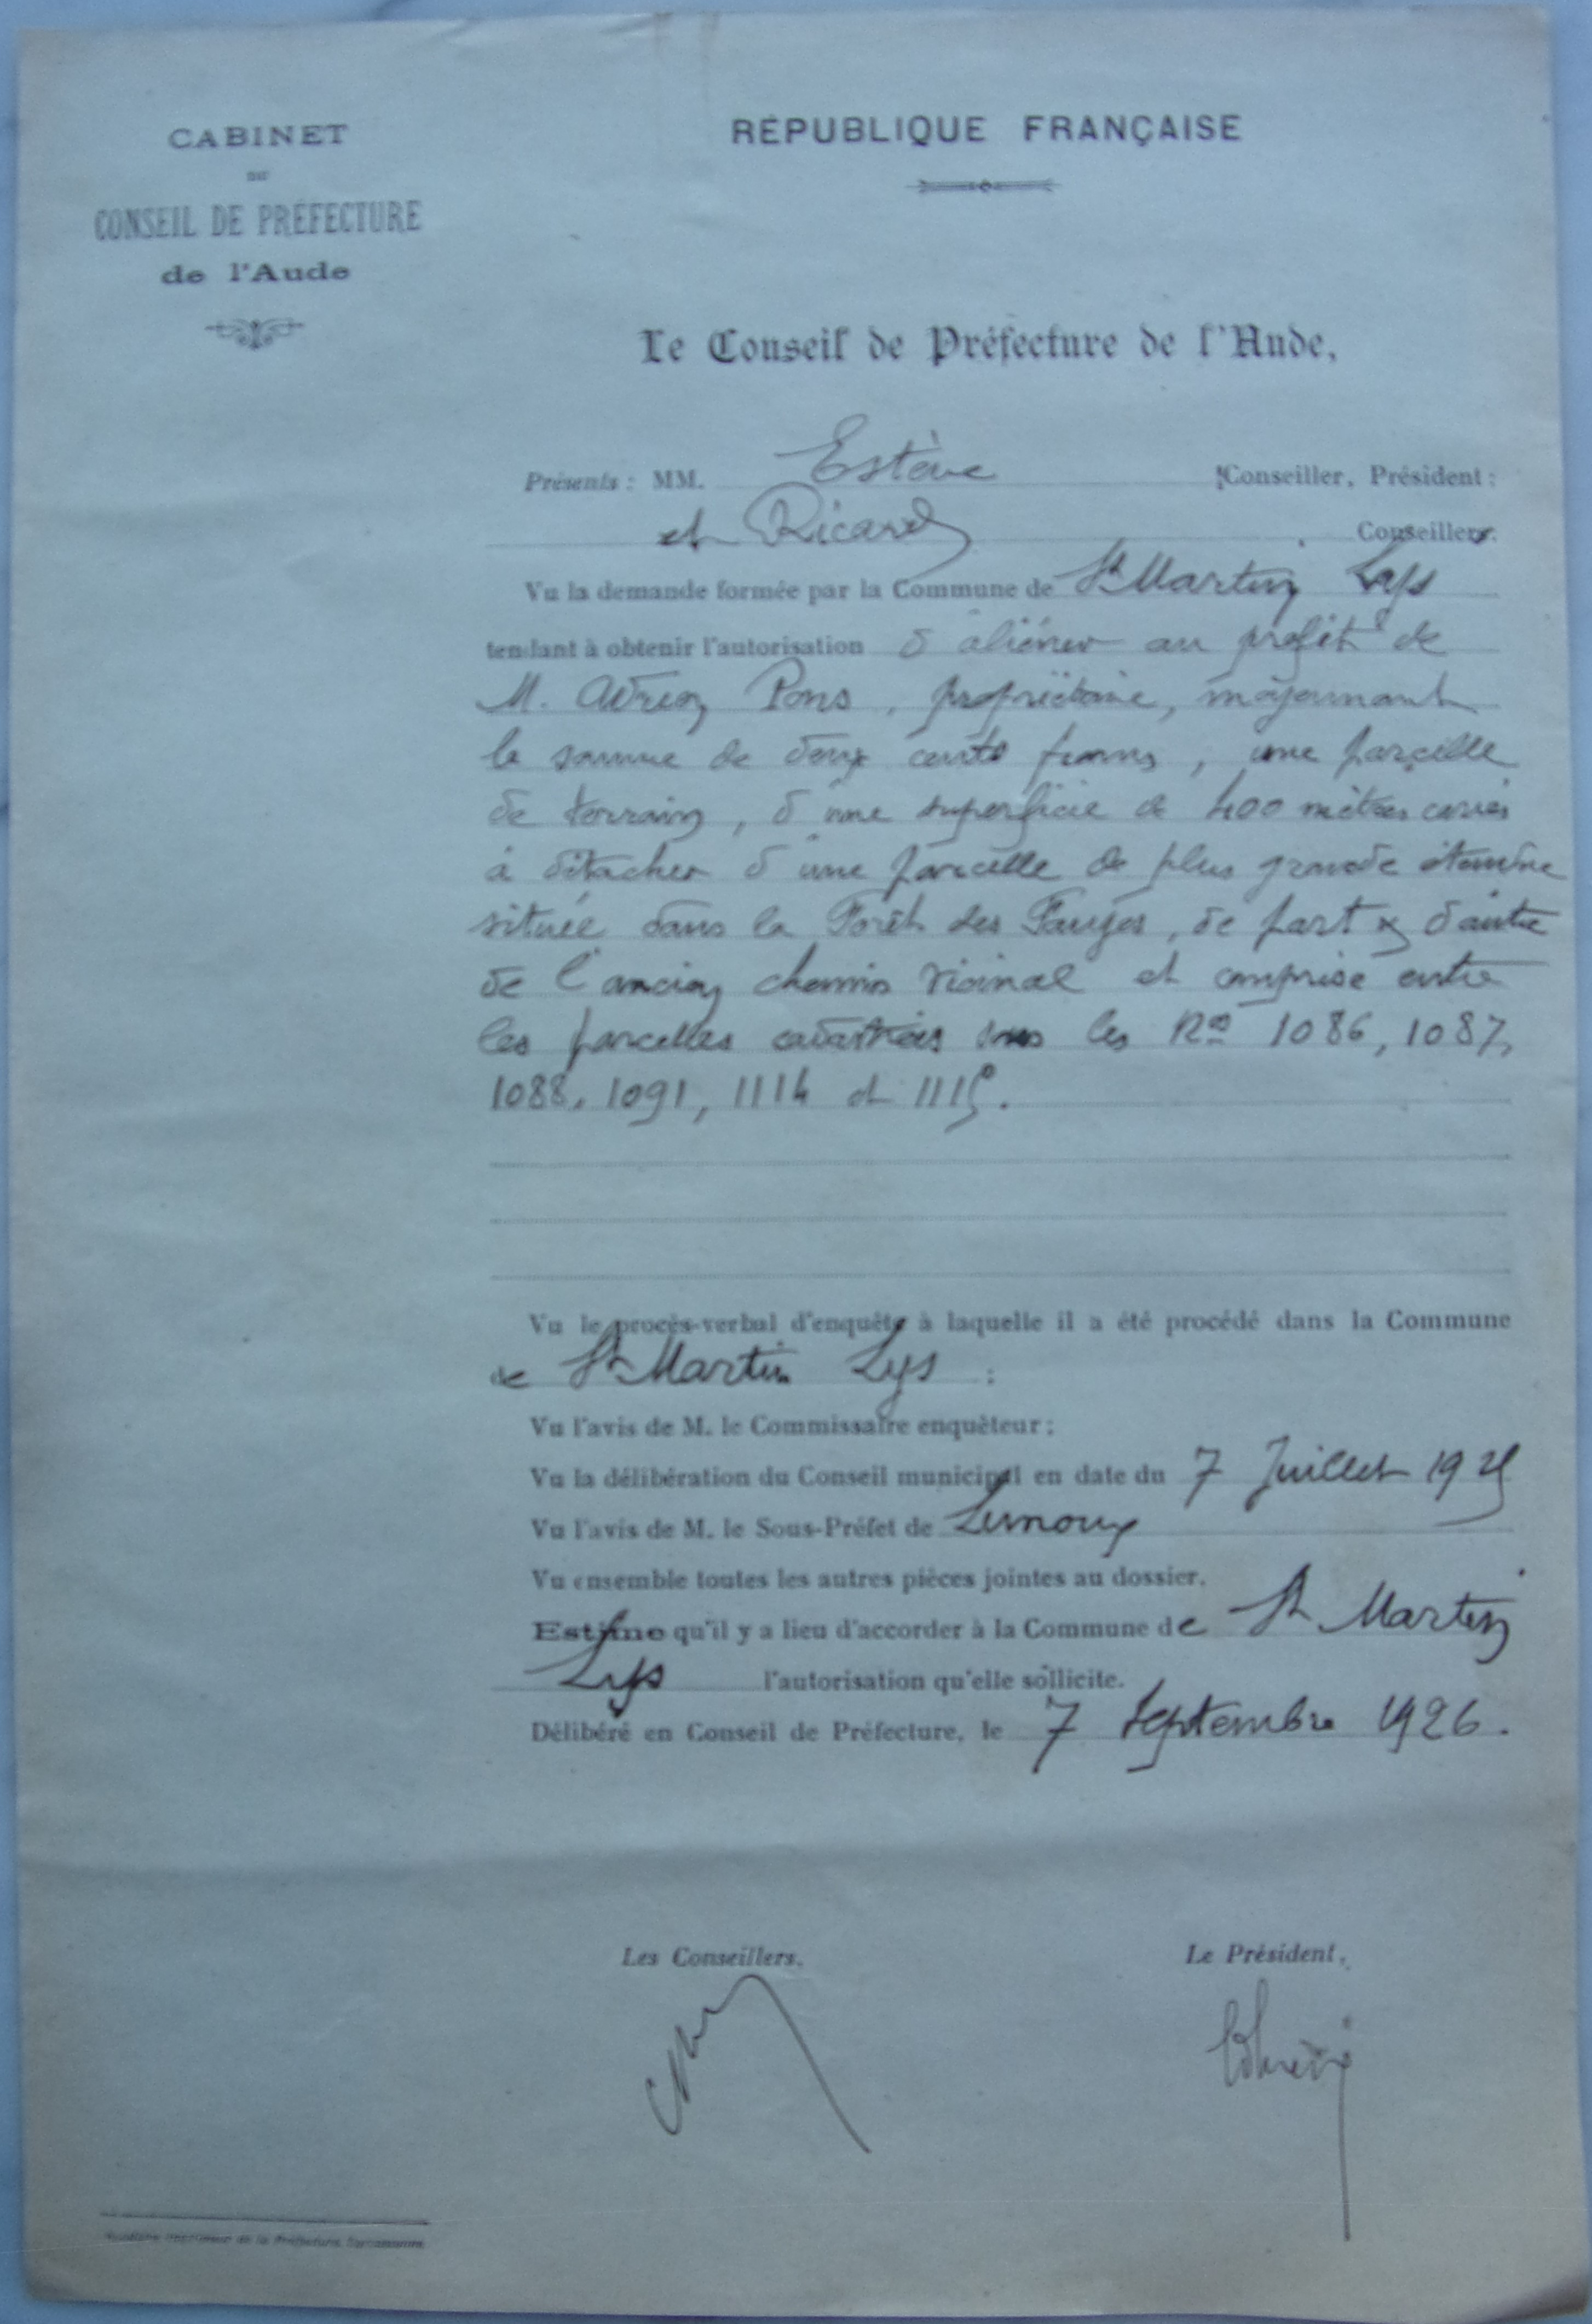 CABINET
DU
CONSEIL DE PRÉFECTURE
de l'Aude
RÉPUBLIQUE FRANÇAISE
Le Conseil de Préfecture de l'Aude,
Présents : MM. Estève Conseiller, Président :
et Ricard Conseiller.
Vu la demande formée par la Commune de St Martin Lys
tendant à obtenir l'autorisation d'aliéner au profit de
M. Adrien Pons, propriétaire, moyennant
la somme de deux cents francs, une parcelle
de terrain, d'une superficie de 400 mètres carrés
à détacher d'une parcelle de plus grande étendue
située dans la Forêt des Fanges, de part et d'autre
de l'ancien chemin vicinal et comprise entre
les parcelles cadastrées sous les Nos 1086, 1087,
1088, 1091, 1114 et 1115.
Vu le procès-verbal d'enquête à laquelle il a été procédé dans la Commune
de St Martin Lys :
Vu l'avis de M. le Commissaire enquêteur ;
Vu la délibération du Conseil municipal en date du 7 Juillet 1925
Vu l'avis de M. le Sous-Préfet de Limoux
Vu ensemble toutes les autres pièces jointes au dossier.
Estime qu'il y a lieu d'accorder à la Commune de St Martin
Lys l'autorisation qu'elle sollicite.
Délibéré en Conseil de Préfecture, le 7 Septembre 1926.
Les Conseillers,
Le Président,
de la Préfecture, Carcassonne